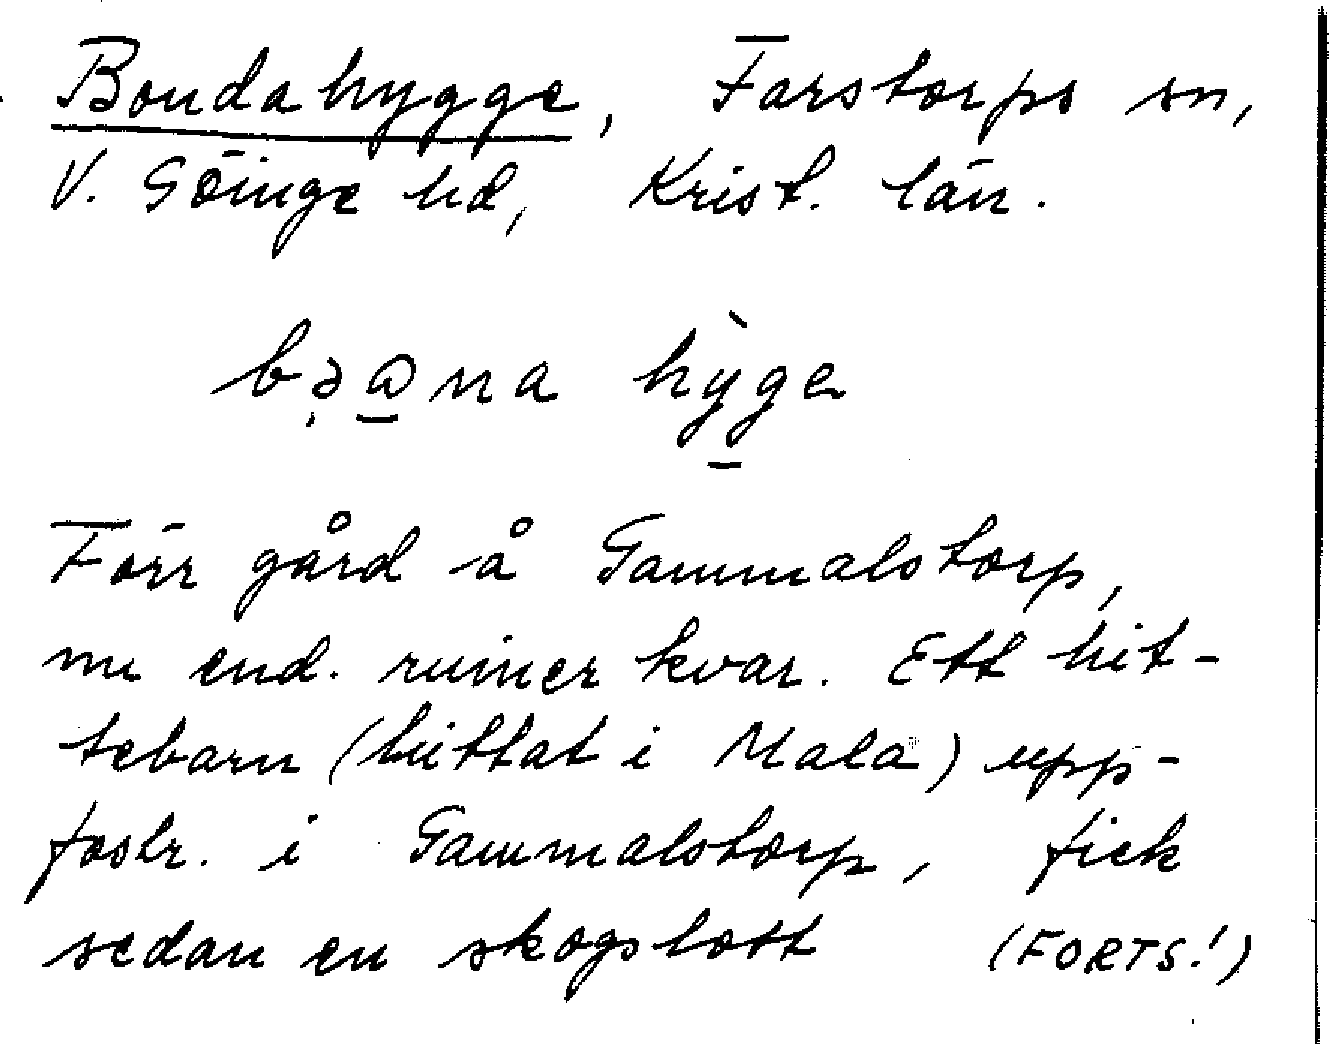 Bondahygge, Farstorps sn,
V. Göinge hd, Krist. län.
bə̣a̱na hỳ̱ge
Förr gård å Gammalstorp,
nu end. ruiner kvar. Ett hit-
tebarn (hittat i Mala) upp-
fostr. i Gammalstorp, fick
sedan en skogslott (FORTS.!)